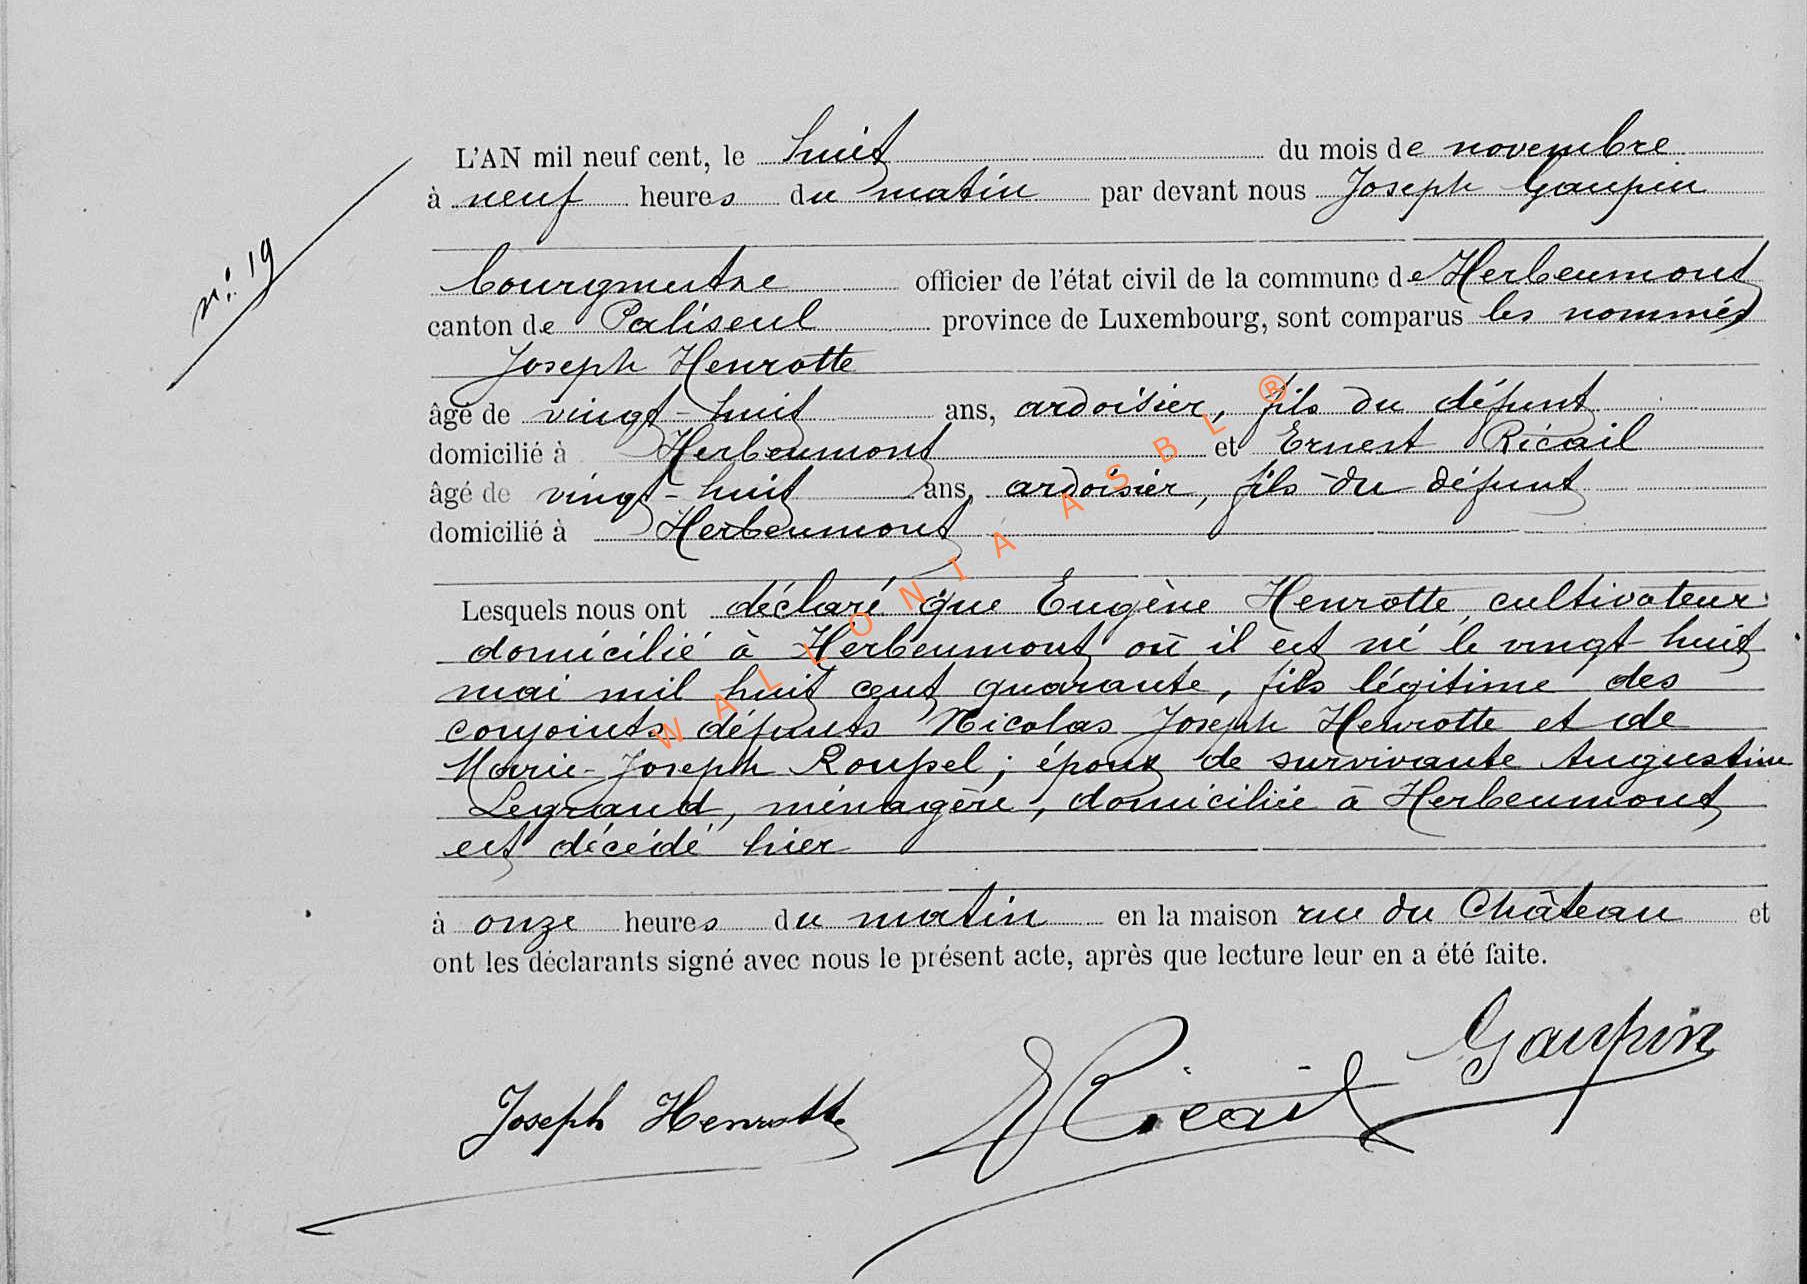 L'AN mil neuf cent, le huit du mois de novembre
à neuf heures du matin par devant nous Joseph Gaupin
n: 19
bourgmestre officier de l'état civil de la commune de Herbeumont
canton de Paliseul province de Luxembourg, sont comparus les nommés
Joseph Henrotte
âgé de vingt-huit ans, ardoisier, fils du défunt
domicilié à Herbeumont et Ernest Ricail
âgé de vingt-huit ans, ardoisier, fils du défunt
domicilié à Herbeumont
Lesquels nous ont déclaré que Eugène Henrotte, cultivateur
domicilié à Herbeumont où il est né le vingt huit
mai mil huit cent quarante, fils légitime des
conjoints défunts Nicolas Joseph Henrotte et de
Marie-Joseph Roupsel; époux de survivante Augustine
Legrand, ménagère, domiciliée à Herbeumont
est décédé hier
à onze heures du matin en la maison rue du Château et
ont les déclarants signé avec nous le présent acte, après que lecture leur en a été faite.
Gaupin
Joseph Henrotte ERicail
WALLONIA ASBL ®